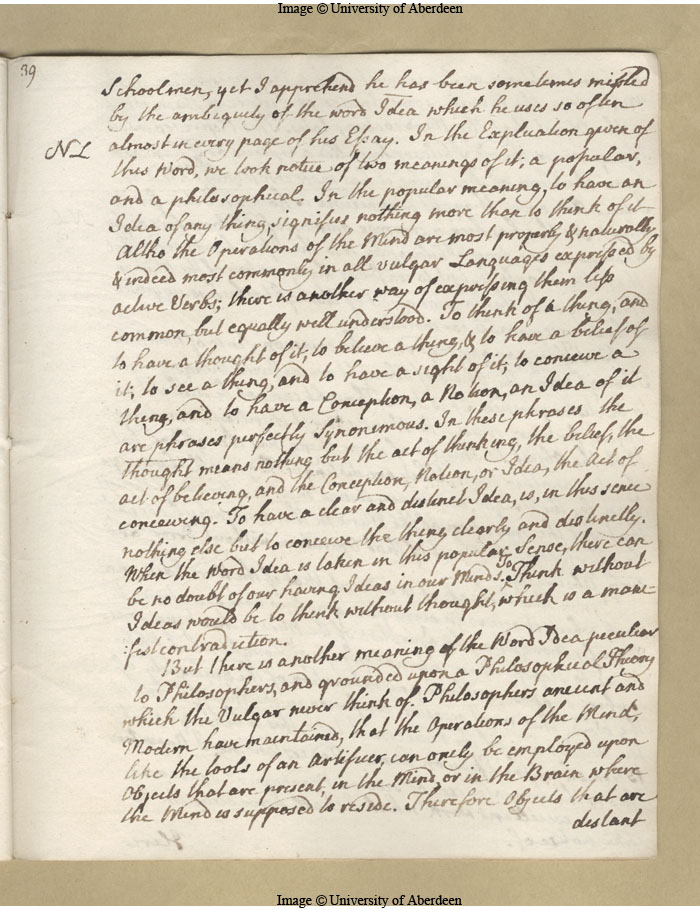 Image © University of Aberdeen
39
Schoolmen, yet I apprehend he has been sometimes missled
by the ambiguity of the word Idea which he uses so often
almost in every page of his Essay. In the Explication given of
NL
this Word, we took notice of two meanings of it; a popular,
and a philosophical. In the popular meaning, to have an
Idea of any thing, signifies nothing more than to think of it
Altho the Operations of the Mind are most properly & naturally
& indeed most commonly in all vulgar Languages expressed by
active Verbs; there is another way of expressing them less
common, but equally well understood. To think of a thing, and
to have a thought of it; to believe a thing, & to have a belief of
it; to see a thing, and to have a sight of it; to conceive a
thing, and to have a Conception, a Notion, an Idea of it
are phrases perfectly Synonimous. In these phrases the
thought means nothing but the act of thinking, the belief, the
act of believing, and the Conception, Notion, or Idea, the Act of
conceiving. To have a clear and distinct Idea, is, in this sence
nothing else but to conceive the thing clearly and distinctly.
When the word Idea is taken in this popular Sense, there can
be no doubt of our having Ideas in our Minds. To Think without
Ideas would be to think without thought, which is a mani=
:fest contradiction.
But there is another meaning of the Word Idea peculiar
to Philosophers, and grounded upon a Philosophical Theory
which the Vulgar never think of. Philosophers ancient and
Modern have maintained, that the Operations of the Mind,
like the tools of an Artificer, can only be employed upon
Objects that are present in the Mind, or in the Brain where
the Mind is supposed to reside. Therefore Objects that are
distant
Image © University of Aberdeen